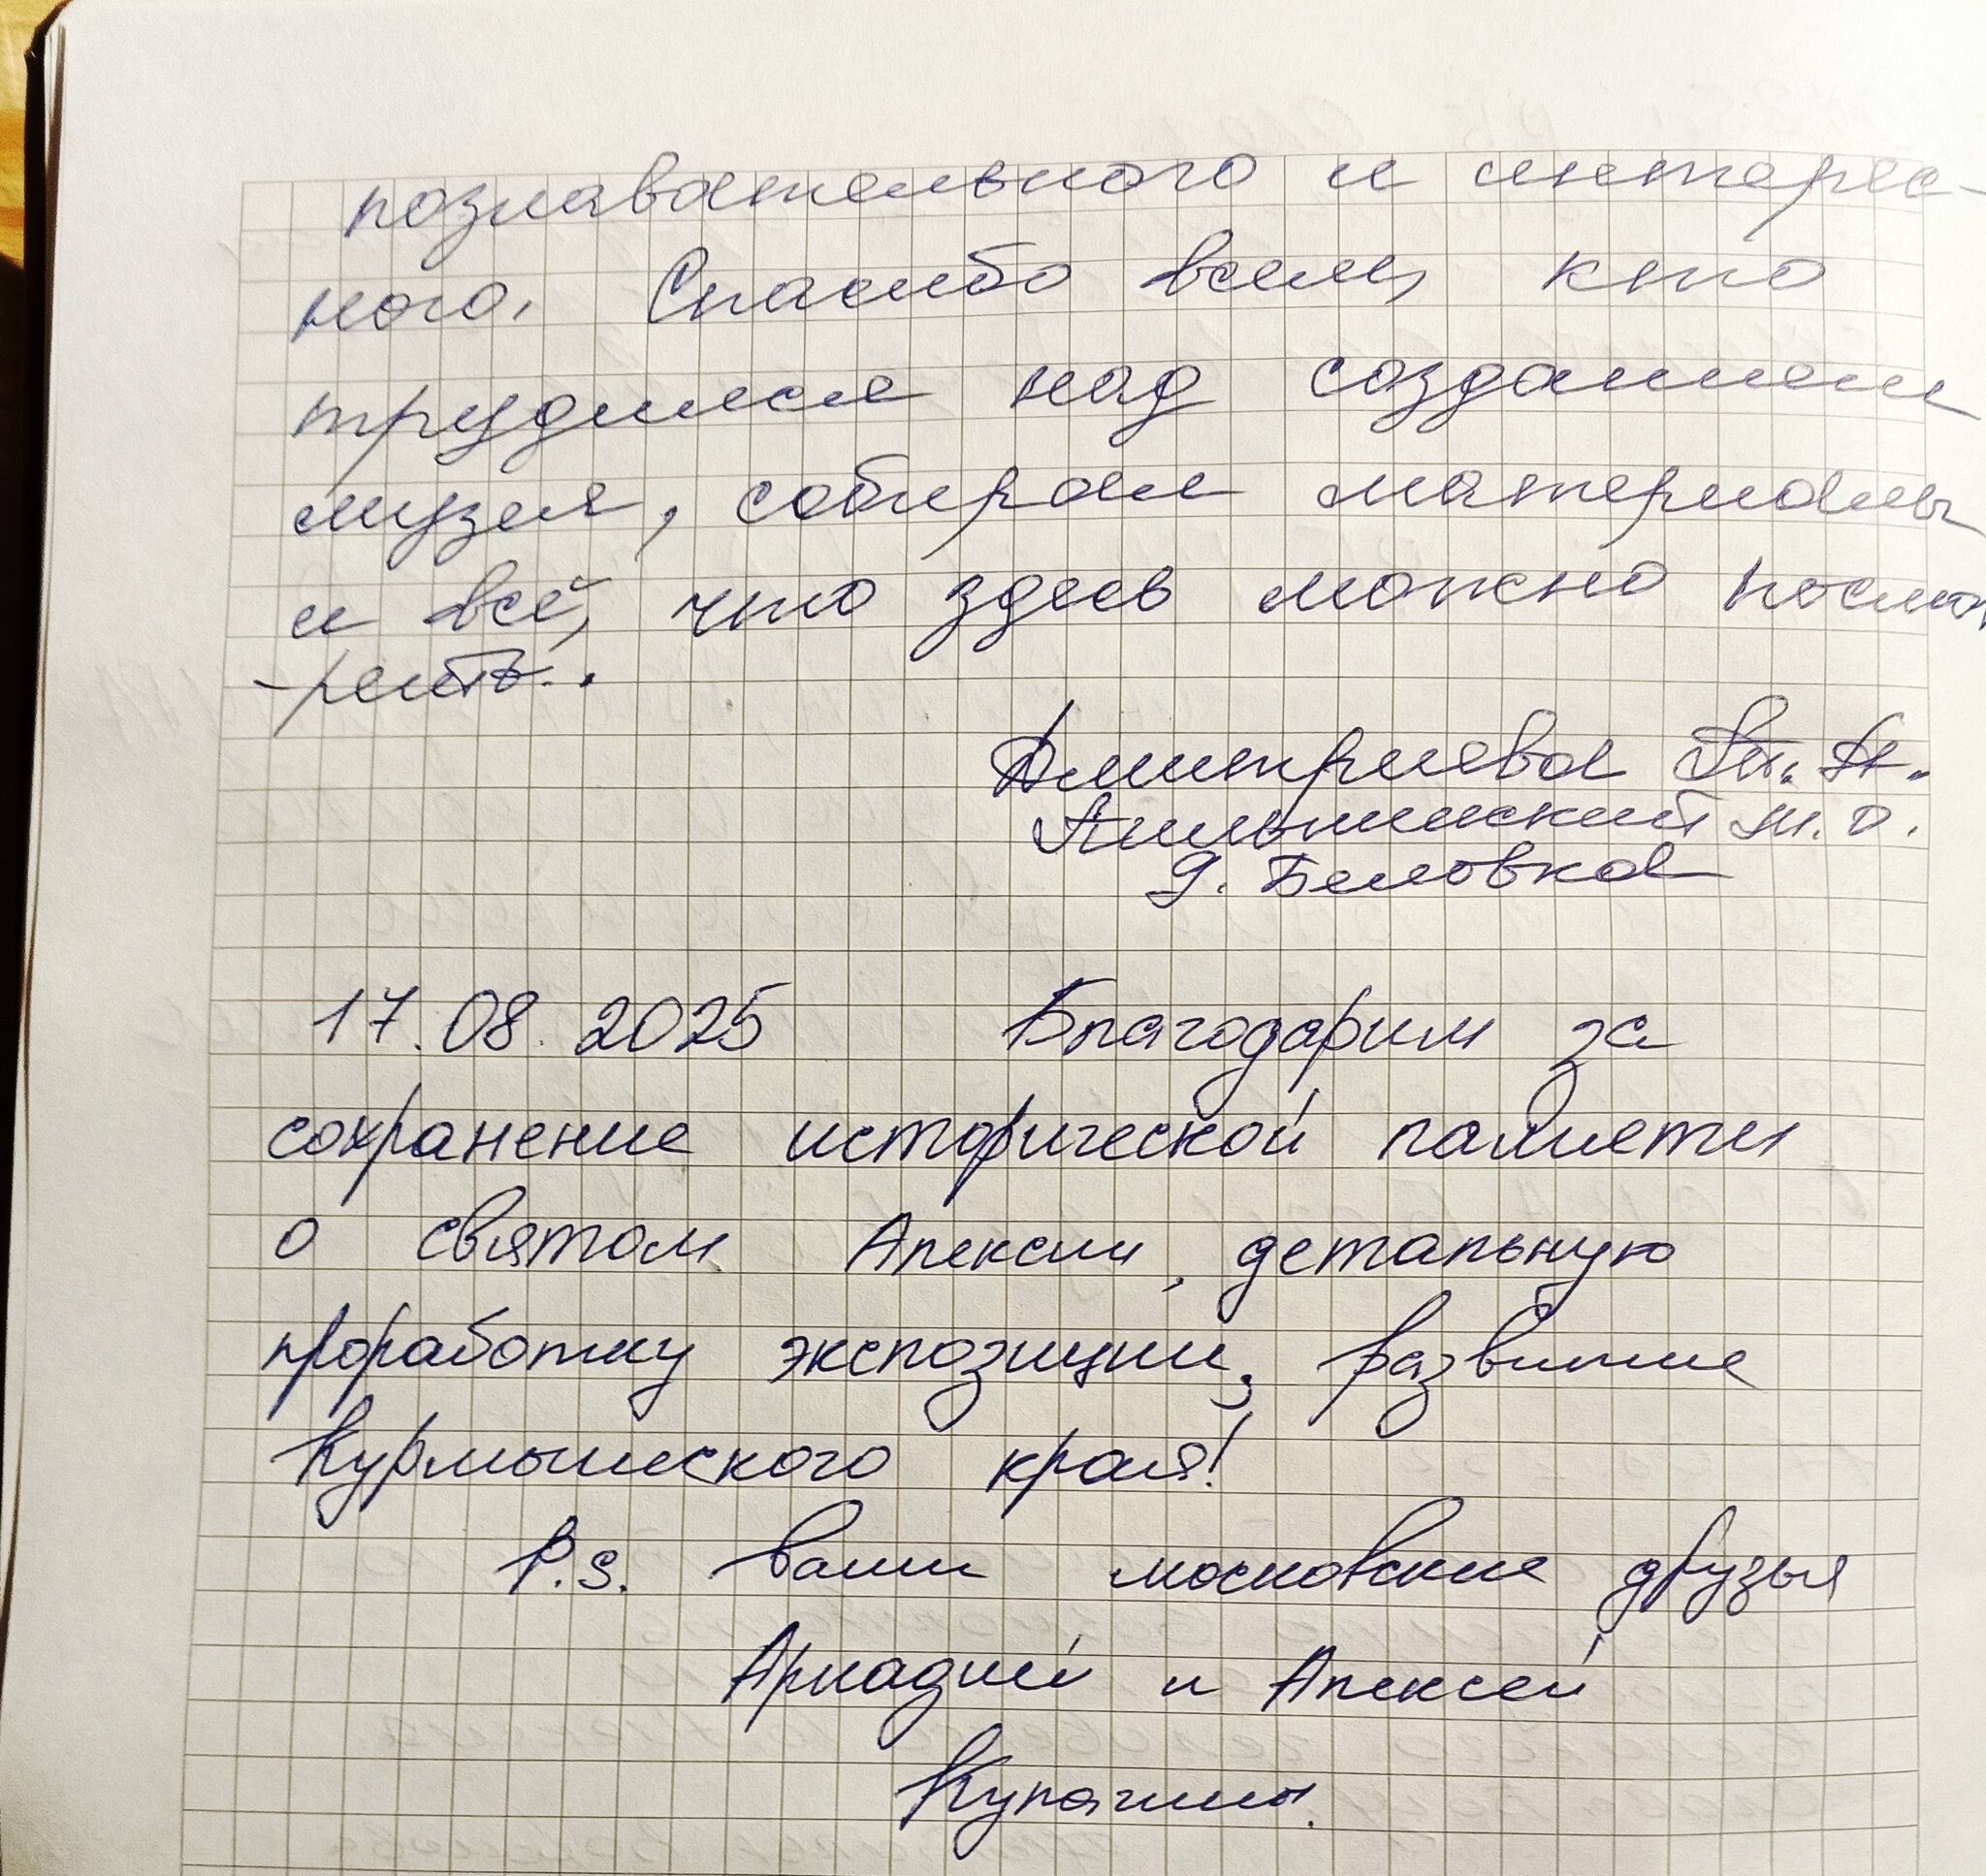 познавательного и интерес-
ного. Спасибо всем, кто
трудился над созданием
музея, собирал материалы
и всё, что здесь можно посмот
-реть.
Дмитриева
Пильнинский м.о.
д. Беловка
17.08.2025 Благодарим за
сохранение исторической памяти
о святом Алексии, детальную
проработку экспозиции, развитие
Курмышского края!
P.S. ваши московские друзья
Аркадий и Алексей
Кулагины.